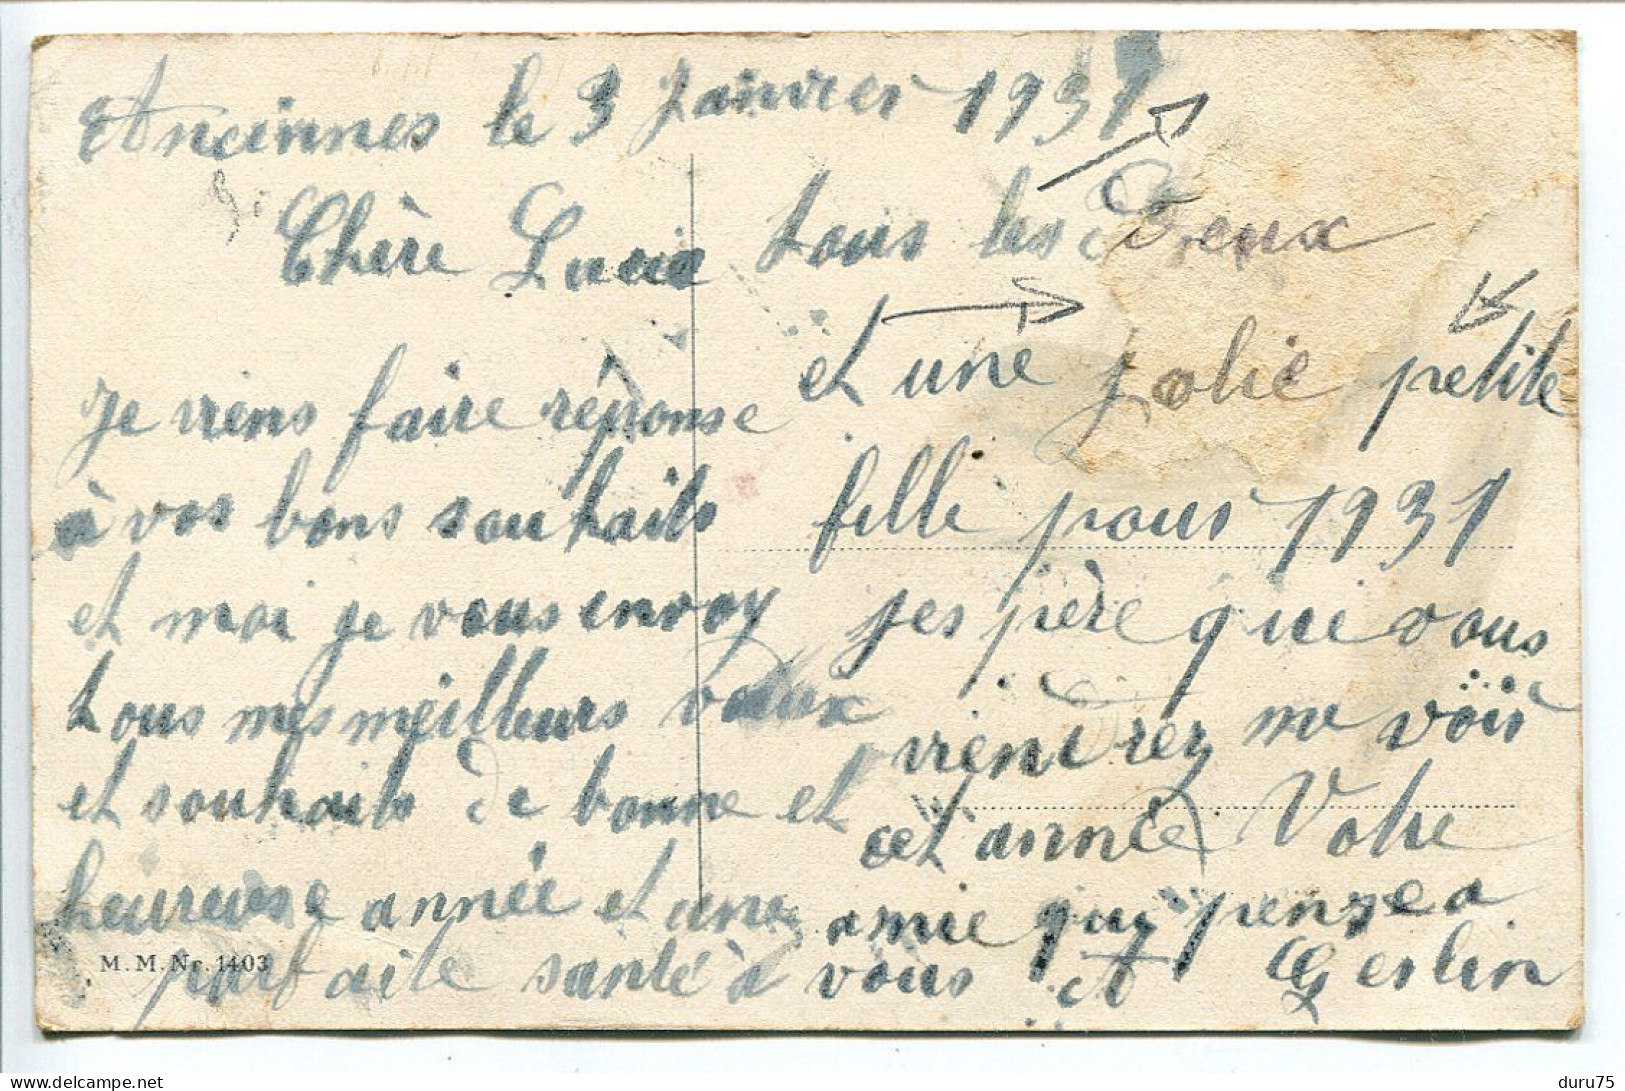 Ancinnes le 3 Janvier 1931
Chère Lucie
je viens faire réponse
à vos bons souhaits
et moi je vous envoy
tous mes meilleurs vœux
et souhaits de bonne et
heureuse année et une
parfaite santé à vous
M. M. Nr. 1403
tous les Deux
et une jolie petite
fille pour 1931
jes père que vous
viendrez me voir
cet année Votre
amie qui pense a
et Gerlin
duru75